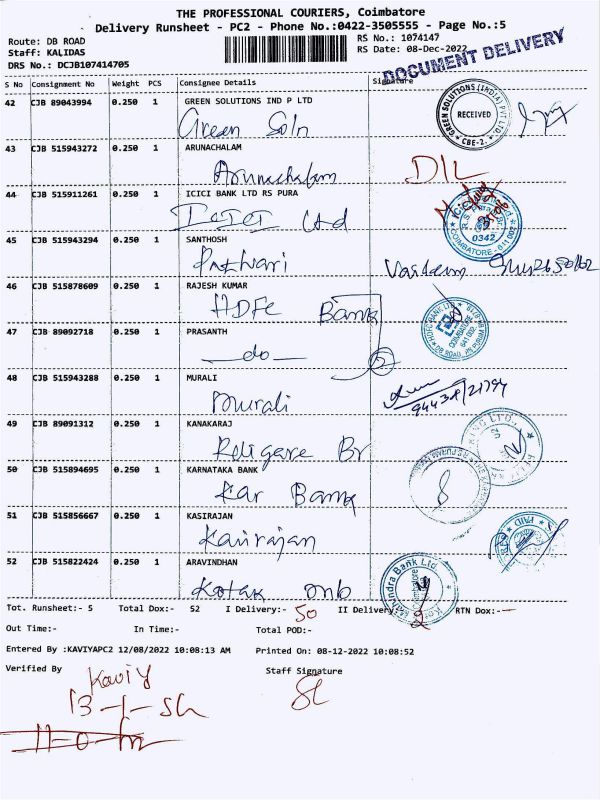 THE PROFESSIONAL COURIERS, Coimbatore
Delivery Runsheet - PC2 - Phone No.:0422-3505555 - Page No.:5
Route: DB ROAD
RS No.: 1074147
Staff: KALIDAS
RS Date: 08-Dec-2022
DRS No.: DCJB107414705
DOCUMENT DELIVERY
S No Consignment No Weight PCS Consignee Details Signature
42 CJB 89043994 0.250 1 GREEN SOLUTIONS IND P LTD
Green Soln
GREEN SOLUTIONS (INDIA) PVT LTD RECEIVED CBE-2.
43 CJB 515943272 0.250 1 ARUNACHALAM
Arunachalam
44 CJB 515911261 0.250 1 ICICI BANK LTD RS PURA
ICICI Ltd
0342 COIMBATORE - 641 002
45 CJB 515943294 0.250 1 SANTHOSH
46 CJB 515878609 0.250 1 RAJESH KUMAR
HDFC Bank
HDFC BANK LTD COIMBATORE 641 002
47 CJB 89092718 0.250 1 PRASANTH
do
2
48 CJB 515943288 0.250 1 MURALI
Murali
49 CJB 89091312 0.250 1 KANAKARAJ
Religare Br
50 CJB 515894695 0.250 1 KARNATAKA BANK
Kar Bank
51 CJB 515856667 0.250 1 KASIRAJAN
Kasirajan
PAID
52 CJB 515822424 0.250 1 ARAVINDHAN
Kotak
Mahindra Bank Ltd. Coimbatore
Tot. Runsheet:- 5 Total Dox:- 52 I Delivery:- 50 II Delivery:- 2 RTN Dox:- —
Out Time:- In Time:- Total POD:-
Entered By :KAVIYAPC2 12/08/2022 10:08:13 AM Printed On: 08-12-2022 10:08:52
Verified By Staff Signature
Kaviy